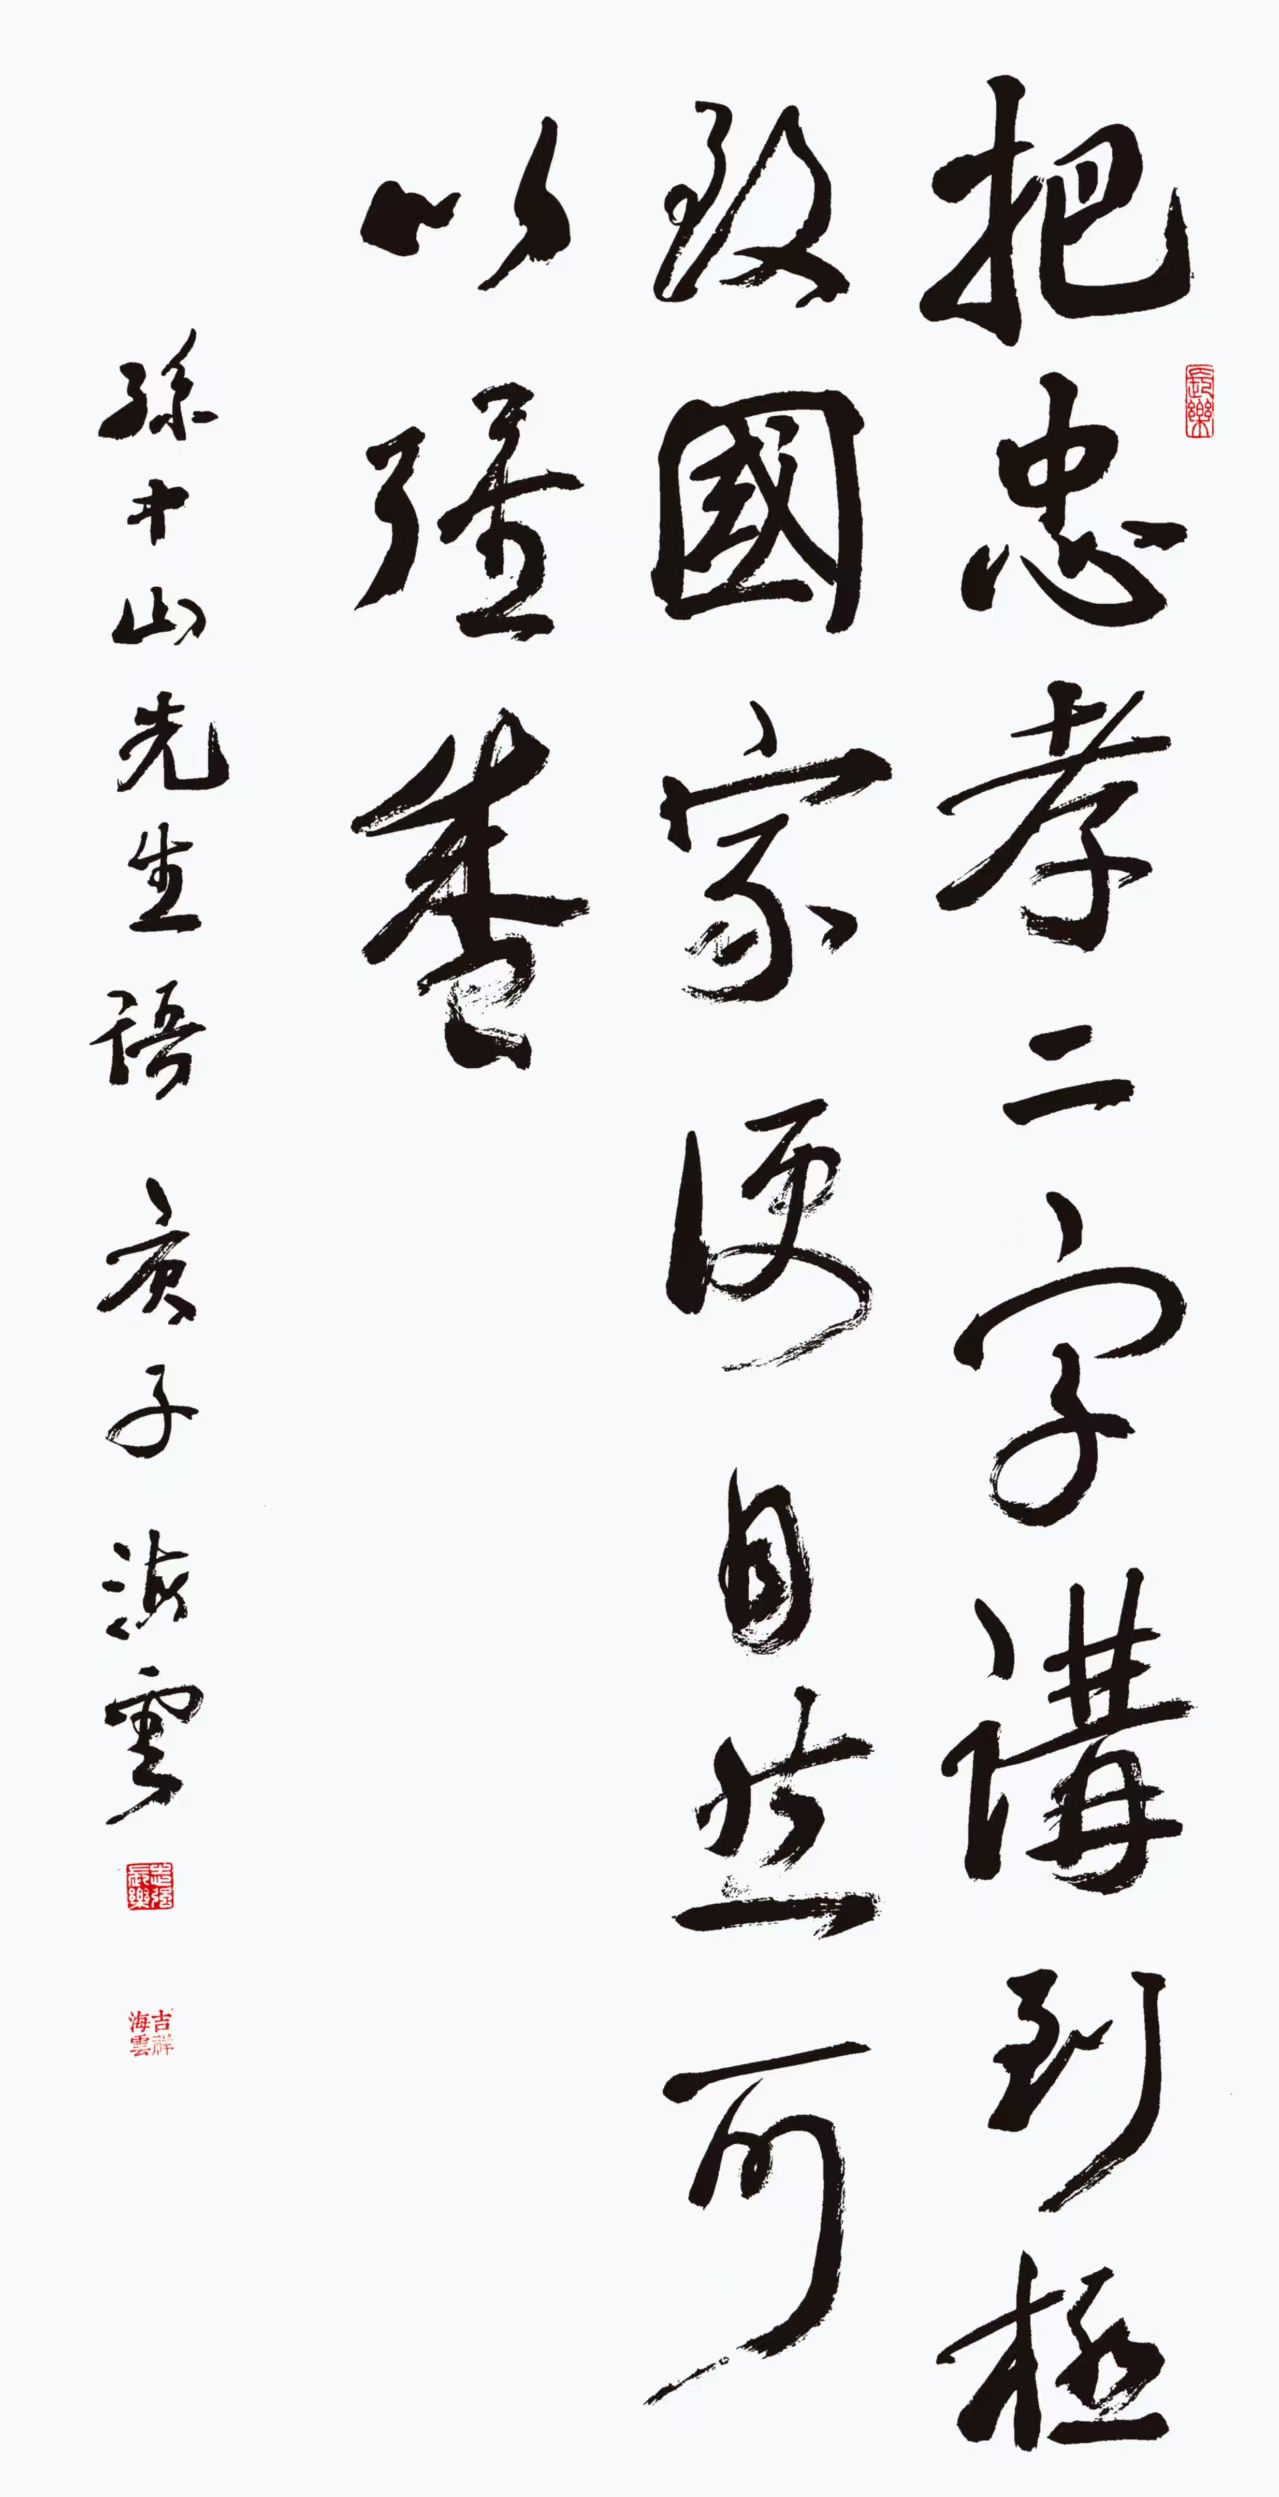 把忠孝二字講到極
致國家便自然可
以強盛
孫中山先生語 亥子海雲
長樂
吉祥海雲